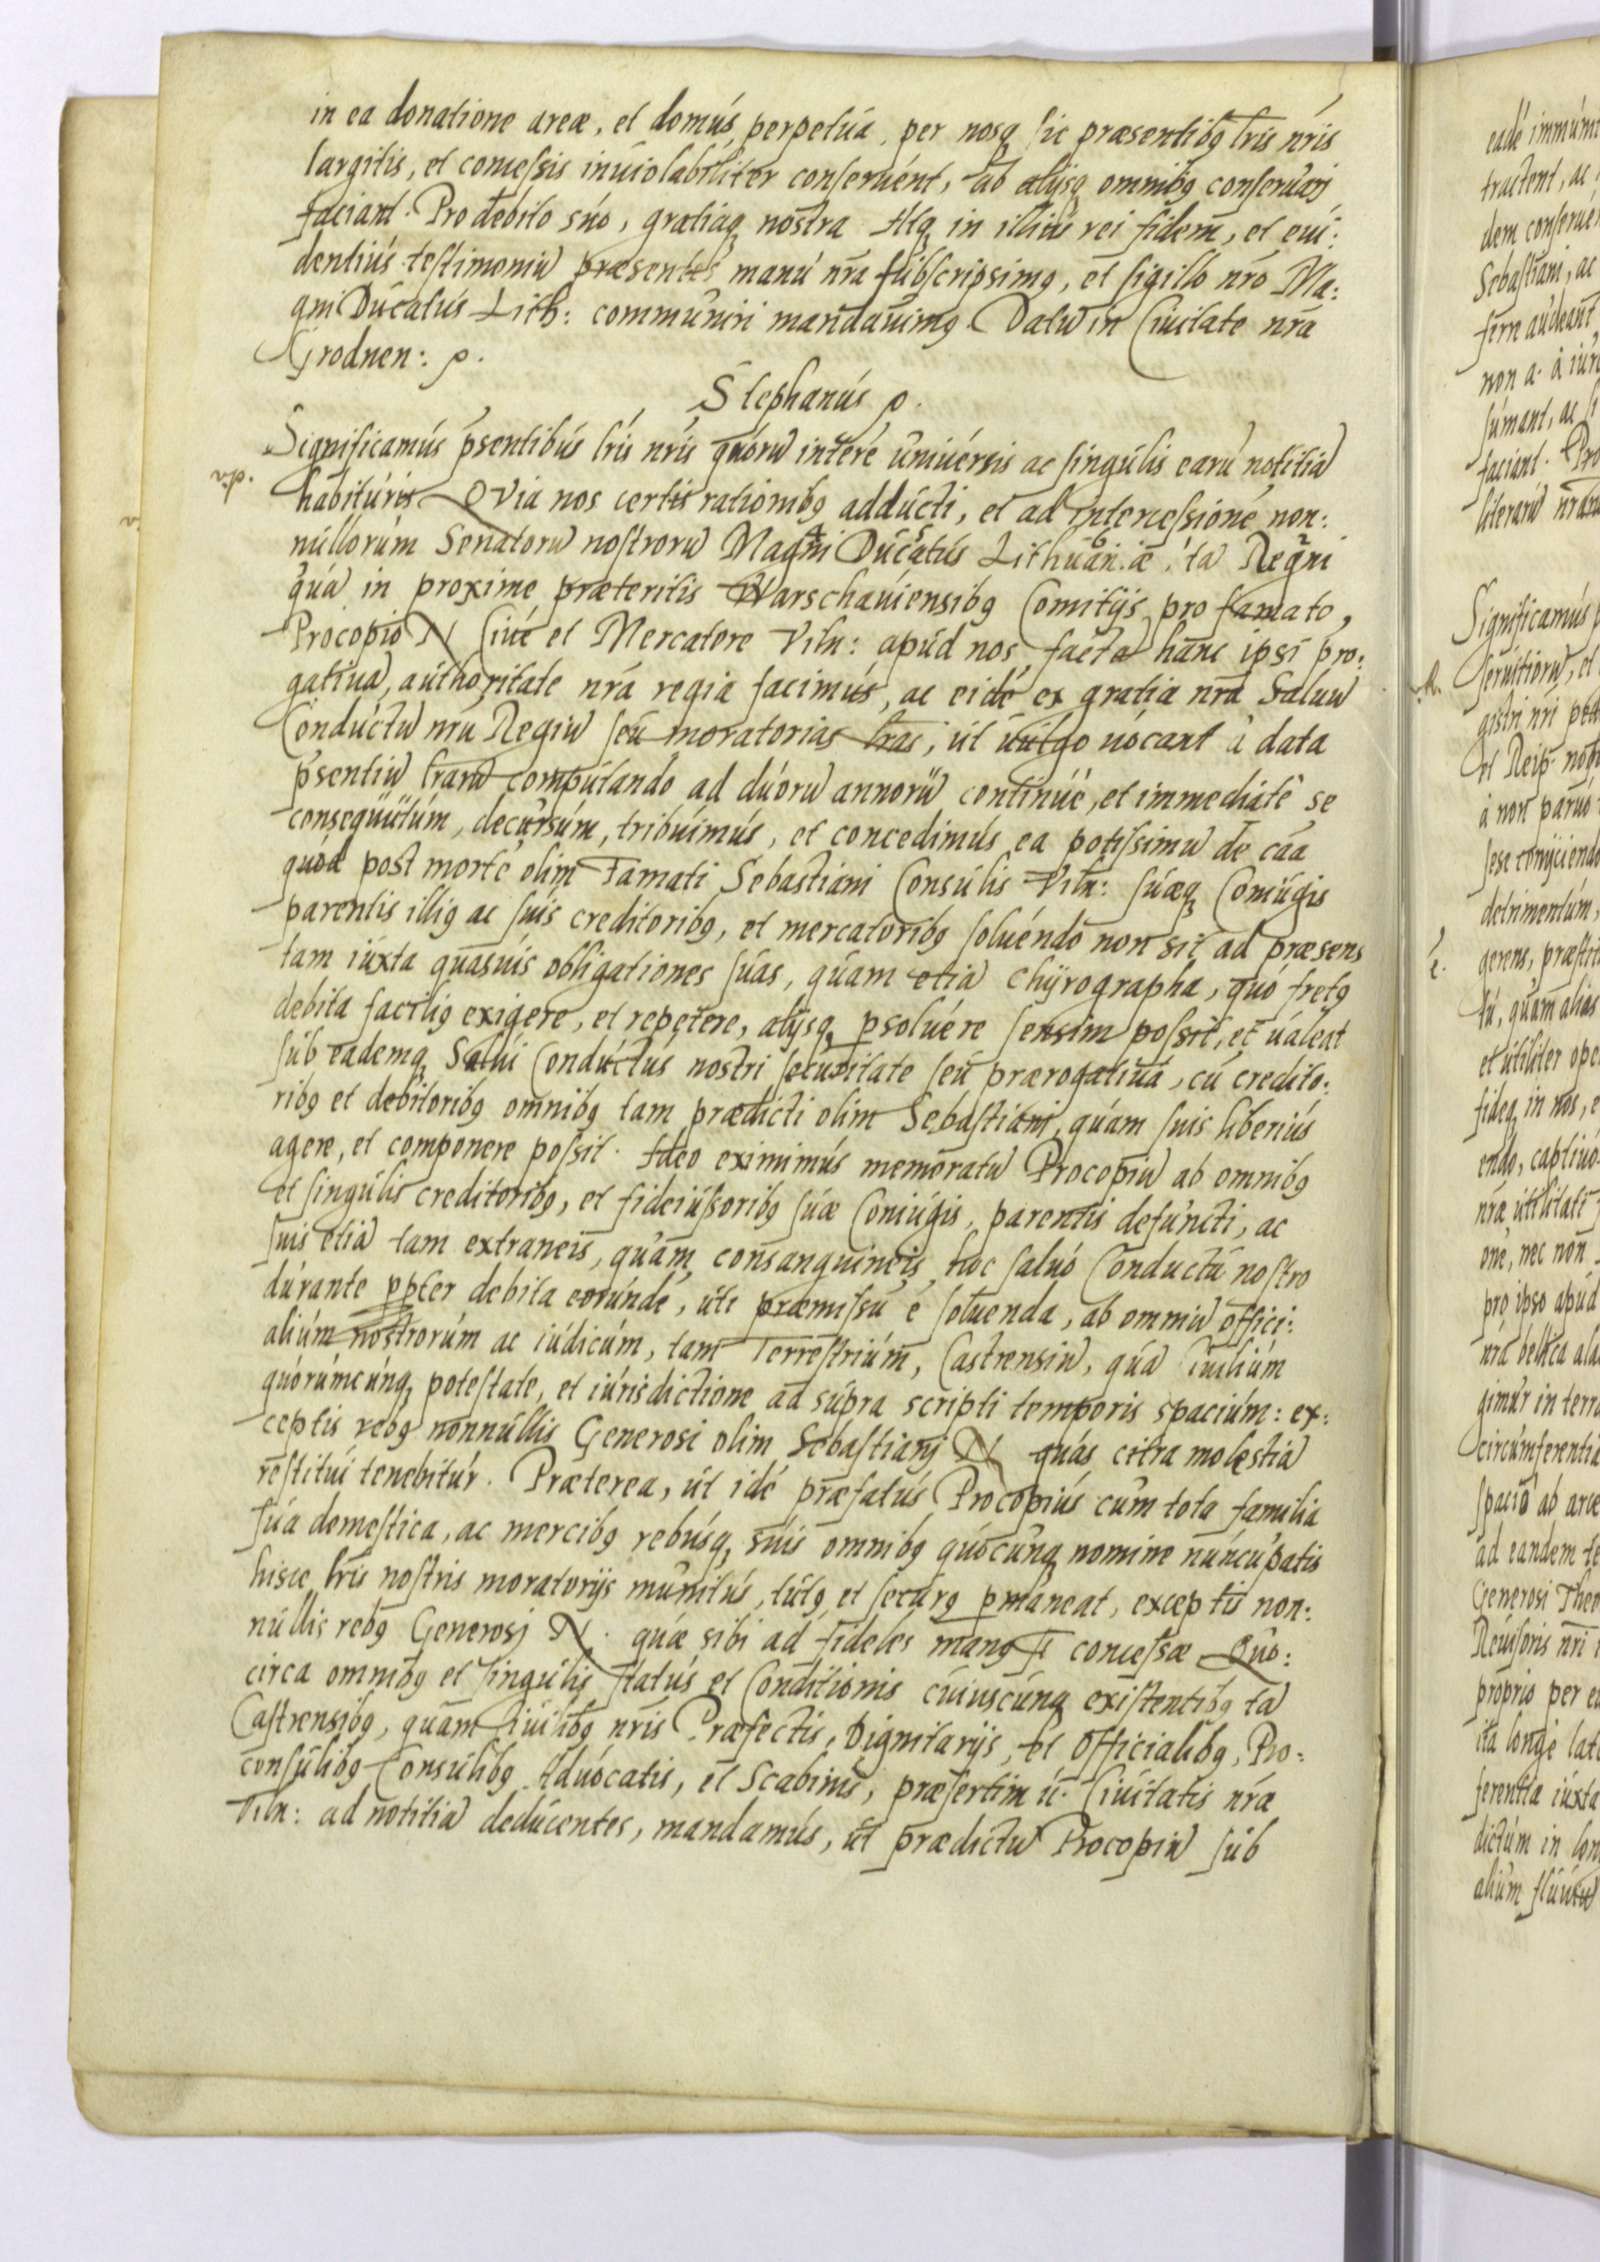 in ea donatione areæ, et domús perpetúa, per nosq₃ sic præsentibꝰ lr̃is nr̃is
largitis, et concessis inúiolabiliter conserúent, ab alijsq₃ omnibꝰ conseruarj
faciant. Pro debito súo, gratiaq₃ nostra Atq₃ in illiús rei fidem, et eúi:
dentiús testimoniū præsentes manú nr̃a súbscripsimꝰ, et sigillo nr̃o Ma:
gni Dúcatús Lith: commúniri mandauimꝰ. Datū in Ciuitate nr̃a
Grodnen: ꝭ.
Stephanús ꝭ.
Significamús p̃sentibús lr̃is nr̃is qúorū interē úniúersis ac singúlis earū notitiā
habitúris Qvia nos certis rationibꝰ addúcti, et ad intercessionē non:
núllorúm Senatorū nostrorū Magni Dúcatús Lithúaniæ, tā Regni
qúā in proxime præteritis Warschaúiensibꝰ Comitijs pro famato,
Procopio N Ciúe et Mercatore Viln: apúd nos factā hanc ipsi pro:
gatiuā, aúthoritate nr̃a regia facimús, ac eidē ex gratia nr̃a Saluū
Condúctū nr̃ū Regiū seú moratorias lr̃as, út úúlgo úocant à data
p̃sentiū lr̃arū compútando ad dúorū annorū continúē, et immediatē se
conseqúútúm, decúrsúm, tribúimús, et concedimús ea potissimū de caã
qúòd post mortē olim Famati Sebastiani Consúlis Viln: súæq₃ Coniúgis
parentis illiꝰ ac súis creditoribꝰ, et mercatoribꝰ solúendo non sit ad præsens
tam iúxta qúasúis obligationes súas, qúam etiā chÿrographa, qúò fretꝰ
debita faciliꝰ exigere, et repetere, alijsq₃ p̱solúere sensim possit, et úaleat
súb eademq₃ Salúi Condúctús nostri secúritate seú prærogatiua, cū credito:
ribꝰ et debitoribꝰ omnibꝰ tam prædicti olim Sebastiani, qúam súis liberiús
agere, et componere possit. Ideo eximimús memoratū Procopiū ab omnibꝰ
et singúlis creditoribꝰ, et fideiússoribꝰ súæ Coniúgis, parentis defúncti, ac
súis etiā tam extraneis, qúam consangúineis hoc salúo Condúctú nostro
dúrante pp̱ter debita eorúndē, úti præmissū ē solúenda, ab omniū offici:
aliúm nostrorúm ac iúdicúm, tam Terrestriúm, Castrensiū, qúā Ciúiliúm
qúorúmcúnq₃ potestate, et iúrisdictione ad súpra scripti temporis spaciúm: ex:
ceptis rebꝰ nonnúllis Generosi olim Sebastianj N qúas citra molestiā
restituí tenebitúr. Præterea, út idē præfatús Procopiús cúm tota familia
súa domestica, ac mercibꝰ rebúsq₃ súis omnibꝰ qúocúnq₃ nomine núncúpatis
hisce lr̃is nostris moratorijs múnitús, tútꝰ et secúrꝰ p̱maneat, exceptis non:
núllis rebꝰ Generosj N. qúæ sibi ad fideles manꝰ st̃ concessæ Qúo:
circa omnibꝰ et singúlis statús et Conditionis cúiuscúnq₃ existentibꝰ tā
Castrensibꝰ, qúam Ciuilibꝰ nr̃is Præfectis, Dignitarijs, et Officialibꝰ, Pro:
consúlibꝰ Consúlibꝰ Adúocatis, et Scabinis, præsertim ú. Ciúitatis nr̃æ
Viln: ad notitiā dedúcentes, mandamús, út prædictū Procopiū súb